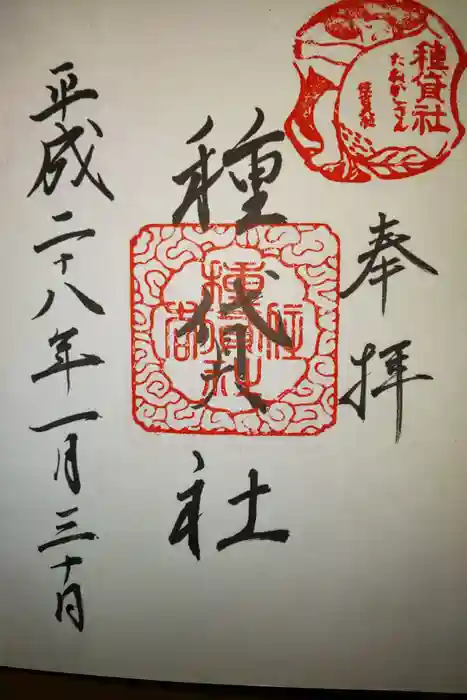 奉拝
種貸社
平成二十八年一月三十日
種貸社
たねかしさん
種貸社